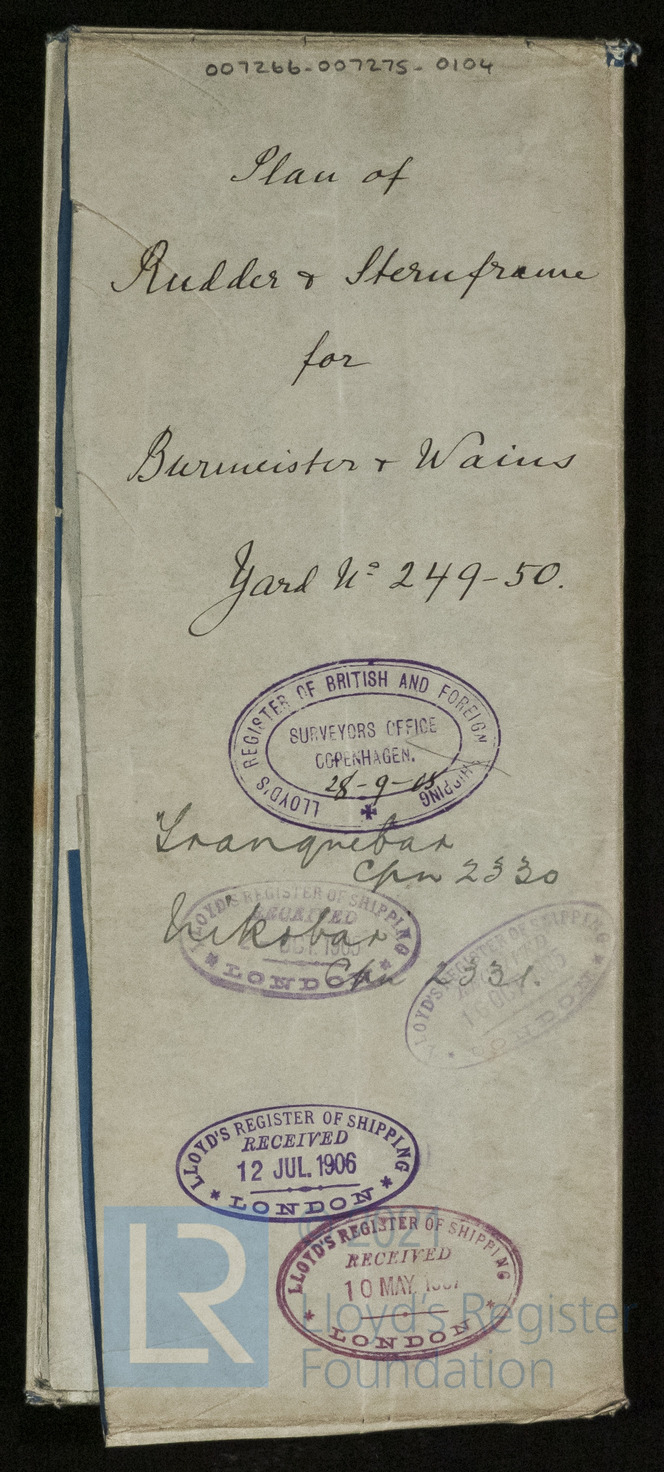 007266-007275-0104
Plan of
Rudder & Sternframe
for
Burmeister & Wains
Yard No 249-50.
LLOYD'S REGISTER OF BRITISH AND FOREIGN SHIPPING
SURVEYORS OFFICE
COPENHAGEN.
28-9-05
Tranquebar
Cpn 2330
LLOYD'S REGISTER OF SHIPPING
RECEIVED
OCT. 1905
LONDON
Nikobar
Cpn 2331.
LLOYD'S REGISTER OF SHIPPING
LONDON
LLOYD'S REGISTER OF SHIPPING
RECEIVED
12 JUL. 1906
LONDON
LLOYD'S REGISTER OF SHIPPING
RECEIVED
10 MAY
LONDON
LR
© 2021
Lloyd's Register
Foundation